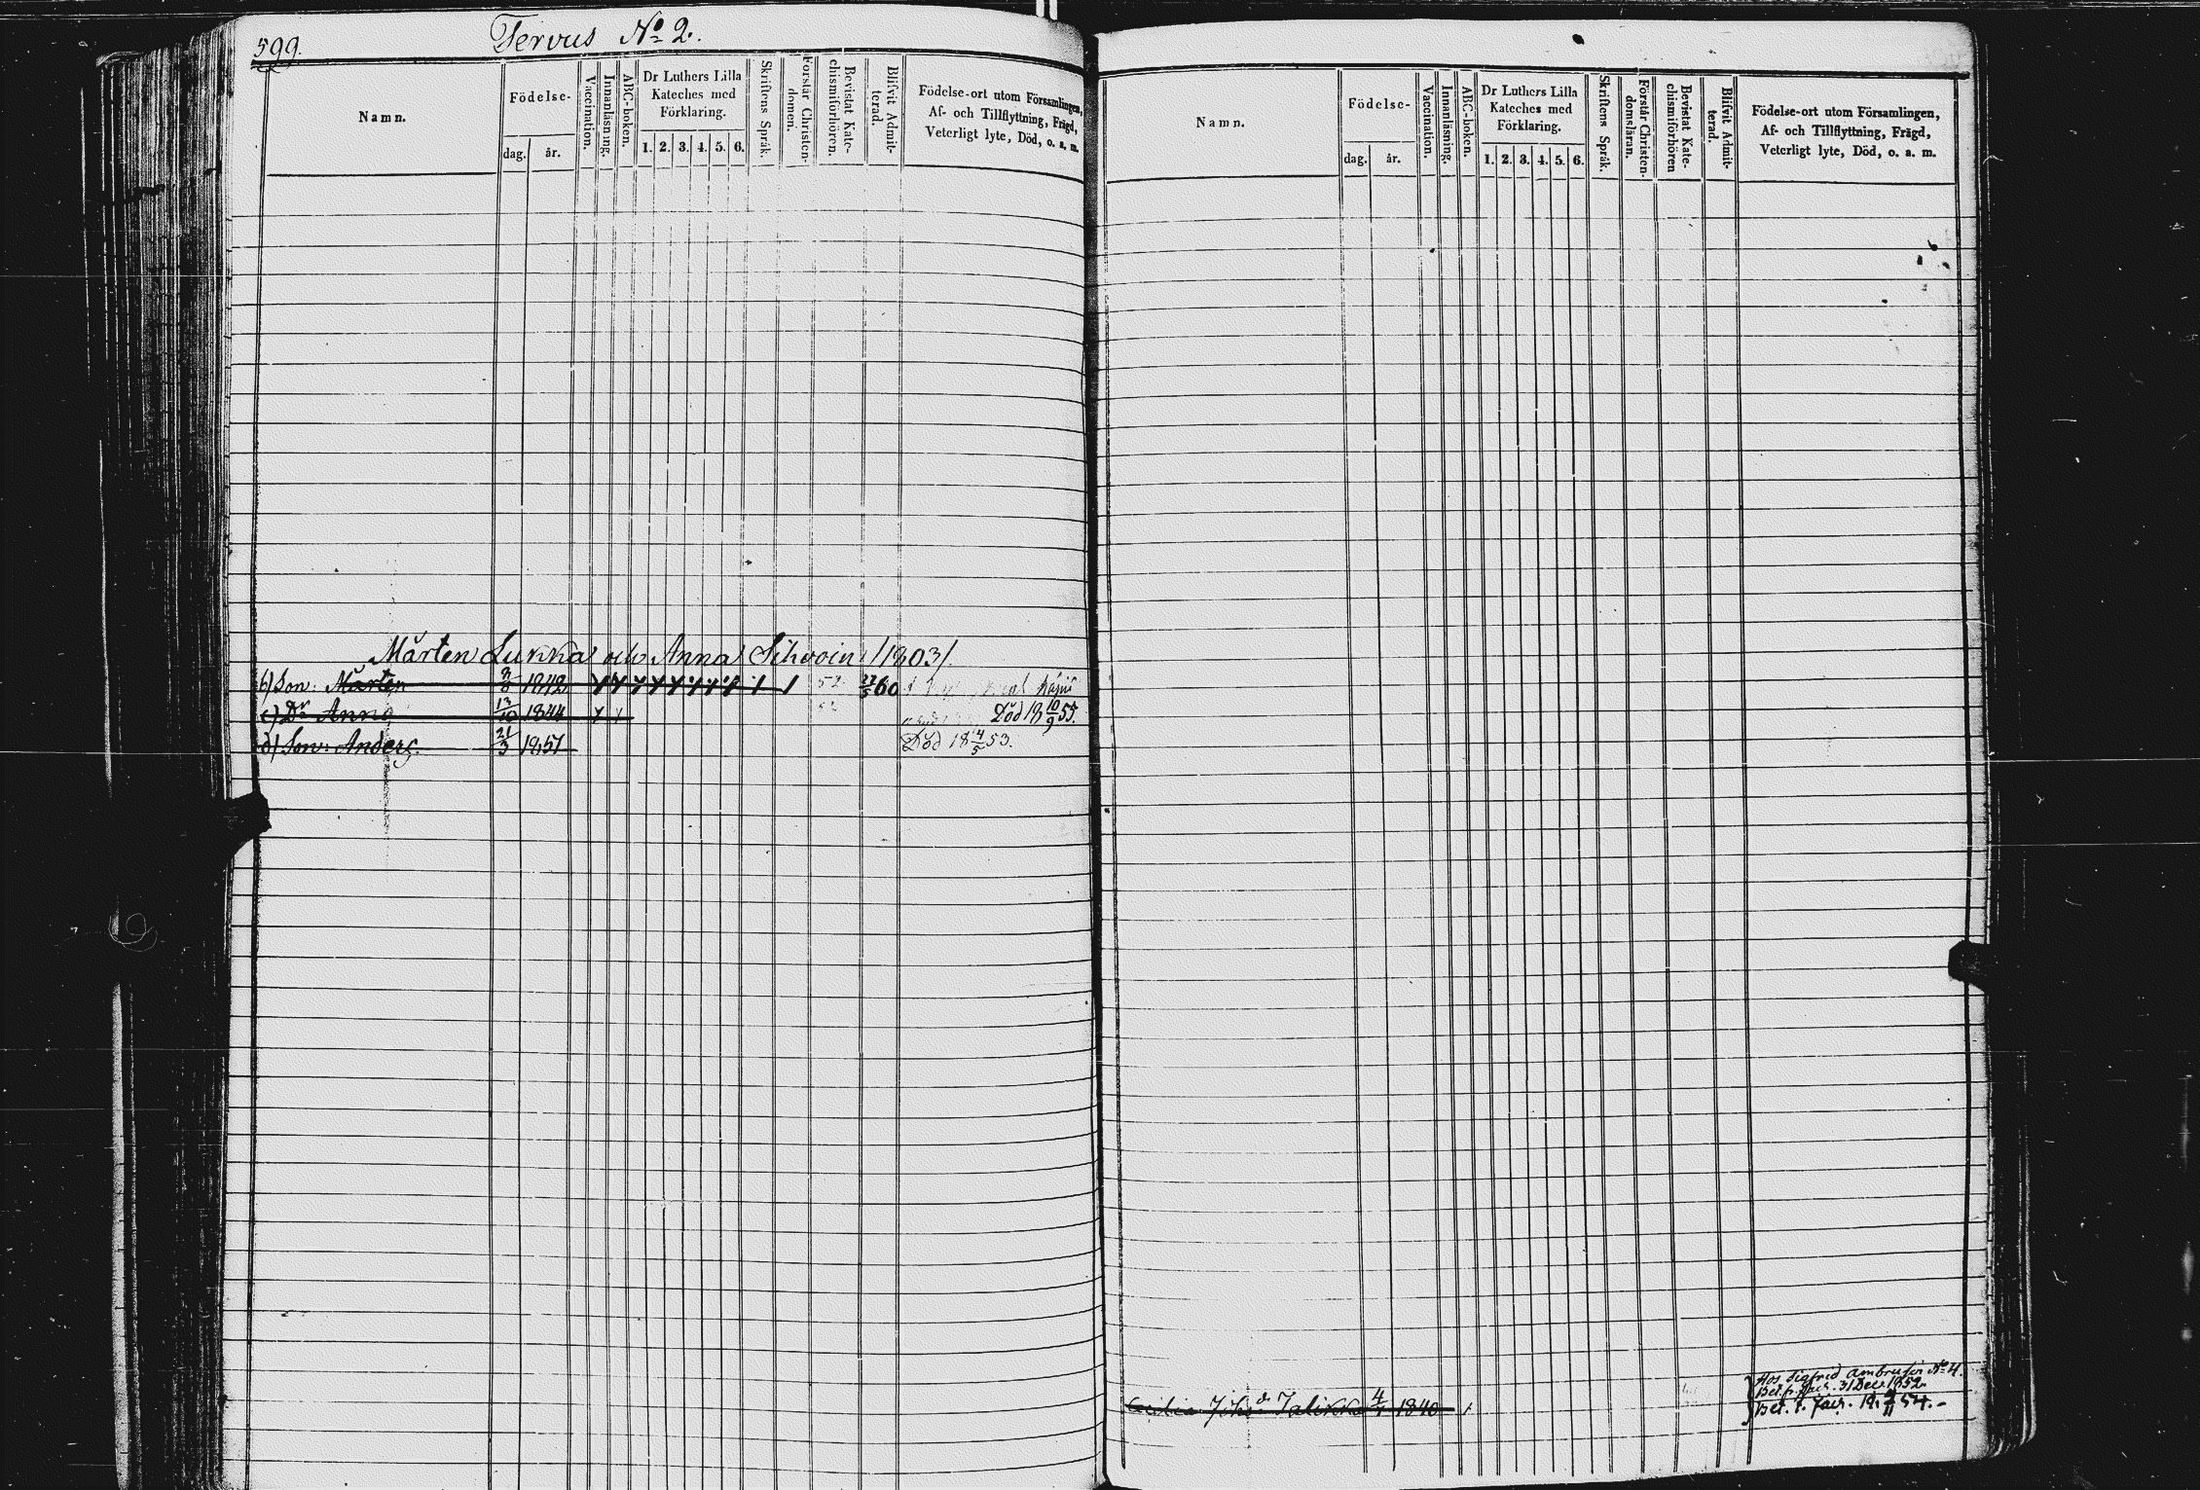 599.
Tervus No 2.
Namn.
Födelse-
dag.
år.
Vaccination.
Innanläsning.
ABC-boken.
Dr Luthers Lilla
Kateches med
Förklaring.
1. 2. 3. 4. 5. 6.
Skriftens Språk.
Förstår Christen-
domen.
Bevistat Kate-
chismiförhören.
Blifvit Admit-
terad.
Födelse-ort utom Församlingen,
Af- och Tillflyttning, Frägd,
Veterligt lyte, Död, o. a. m.
Mårten Lukka och Anna Sihvoin /1803/
b) Son: Mårten 9/8 1842 52 27/5 60
c) Dr Anna 13/10 1844 52 Död 18 10/9 55.
d) Son: Anders. 21/3 1851 Död 18 4/5 53.
Namn.
Födelse-
dag.
år.
Vaccination.
Innanläsning.
ABC-boken.
Dr Luthers Lilla
Kateches med
Förklaring.
1. 2. 3. 4. 5. 6.
Skriftens Språk.
Förstår Christen-
domsläran.
Bevistat Kate-
chismiförhören
Blifvit Admit-
terad.
Födelse-ort utom Församlingen,
Af- och Tillflyttning, Frägd,
Veterligt lyte, Död, o. a. m.
Hos Sigfrid No 4.
Bet. fr. 31 Decr 1852
Joh: dr Jalikka 1840 Bet. t.